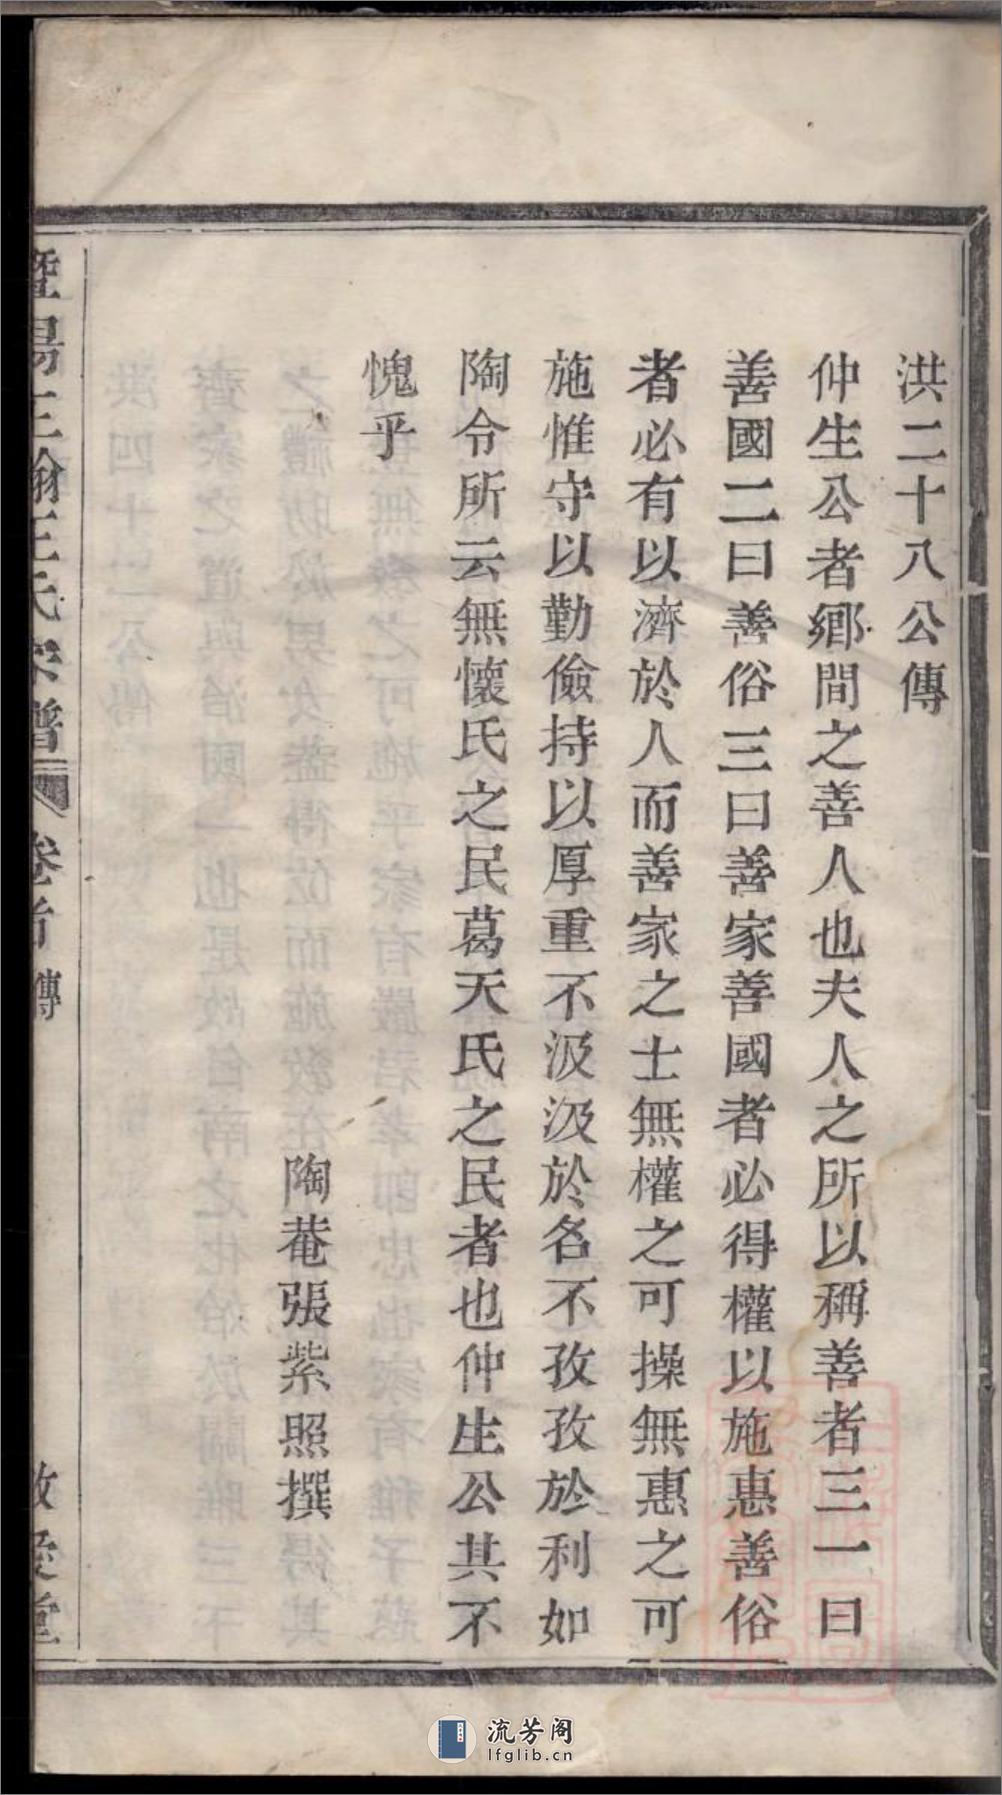 洪二十八公傳
仲生公者鄉間之善人也夫人之所以稱善者三一曰
善國二曰善俗三曰善家善國者必得權以施惠善俗
者必有以濟於人而善家之士無權之可操無惠之可
施惟守以勤儉持以厚重不汲汲於名不孜孜於利如
陶令所云無懷氏之民葛天氏之民者也仲生公其不
愧乎
陶菴張紫照撰
暨陽王翰王氏宗譜 卷首 傳 敬愛堂
流芳阁
lfglib.cn